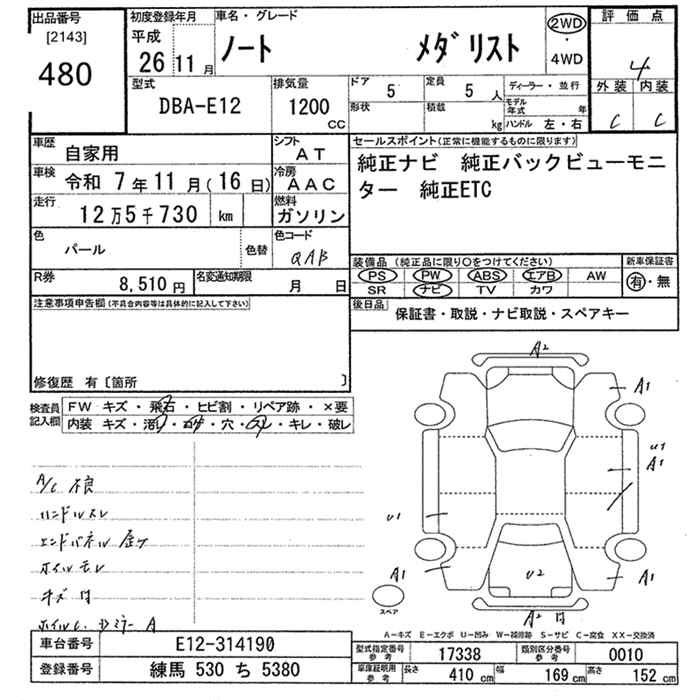 出品番号
[2143]
480
初度登録年月
平成
26年11月
車名・グレード
ノート メダリスト
2WD
・
4WD
評価点
4
外装 内装
C C
型式
DBA-E12
排気量
1200
CC
ドア 5
定員 5人
形状
積載 kg
ディーラー・並行
モデル年式 年
ハンドル 左・右
車歴 自家用
シフト AT
車検 令和 7年11月(16日)
冷房 AAC
走行 12万5千730 km
燃料 ガソリン
色 パール 色替
色コード QAB
R券 8,510円
名変通知期限 月 日
セールスポイント(正常に機能するものに限ります)
純正ナビ 純正バックビューモニ
ター 純正ETC
装備品 (純正品に限り○をつけてください)
PS PW ABS エアB AW
SR ナビ TV カワ
新車保証書
有・無
後日品 保証書・取説・ナビ取説・スペアキー
注意事項申告欄(不具合内容等は具体的に記入して下さい)
修復歴 有〔箇所 〕
検査員
記入欄
FW キズ・飛石・ヒビ割・リペア跡・×要
内装 キズ・汚レ・コゲ・穴・スレ・キレ・破レ
A/C 不良
ハンドルスレ
エンドパネル
キズ
A
A2
A1
U1
A1
U1
A1
U2
A1
A2
スペア
A-キズ E-エクボ U-凹み W-補修跡 S-サビ C-腐食 XX-交換済
車台番号 E12-314190
登録番号 練馬 530 ち 5380
型式指定番号 参考 17338
類別区分番号 参考 0010
車庫証明用 参考 長さ 410 cm 幅 169 cm 高さ 152 cm